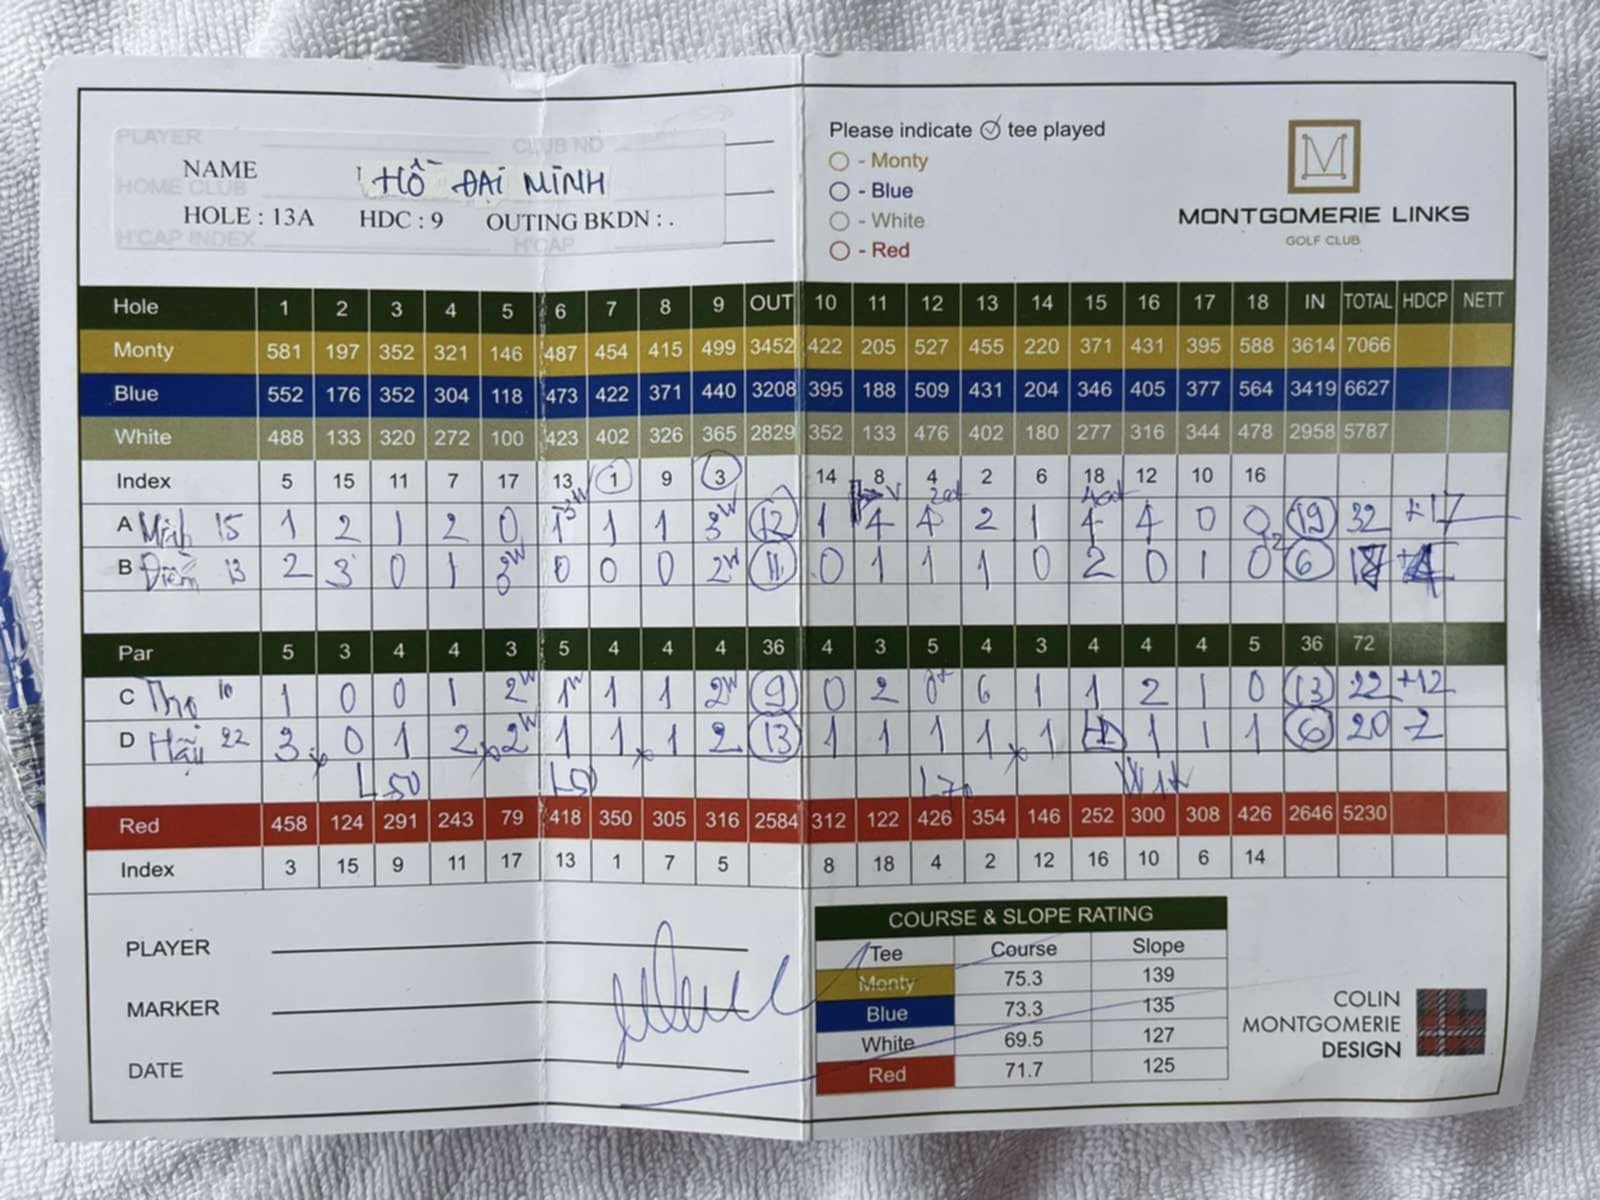 PLAYER CLUB NO
NAME HỒ ĐẠI MINH
HOME CLUB
HOLE : 13A HDC : 9 OUTING BKDN : .
H'CAP INDEX H'CAP
Please indicate tee played
- Monty
- Blue
- White
- Red
MONTGOMERIE LINKS
GOLF CLUB
Hole 1 2 3 4 5 6 7 8 9 OUT 10 11 12 13 14 15 16 17 18 IN TOTAL HDCP NETT
Monty 581 197 352 321 146 487 454 415 499 3452 422 205 527 455 220 371 431 395 588 3614 7066
Blue 552 176 352 304 118 473 422 371 440 3208 395 188 509 431 204 346 405 377 564 3419 6627
White 488 133 320 272 100 423 402 326 365 2829 352 133 476 402 180 277 316 344 478 2958 5787
Index 5 15 11 7 17 13 1 9 3 14 8 4 2 6 18 12 10 16
A Minh 15 1 2 1 2 0 1 1 1 3W 12 1 4 4 2 1 4 4 0 0 19 32 +17
B 13 2 3 0 1 3W 0 0 0 2W 11 0 1 1 1 0 2 0 1 0 6
Par 5 3 4 4 3 5 4 4 4 36 4 3 5 4 3 4 4 4 5 36 72
C Thọ 10 1 0 0 1 2W 1W 1 1 2W 9 0 2 0 6 1 1 2 1 0 13 22 +12
D Hậu 22 3 0 1 2 2W 1 1 1 2 13 1 1 1 1 1 1 1 1 6 20 -2
L50 L50 L70
Red 458 124 291 243 79 418 350 305 316 2584 312 122 426 354 146 252 300 308 426 2646 5230
Index 3 15 9 11 17 13 1 7 5 8 18 4 2 12 16 10 6 14
PLAYER
MARKER
DATE
COURSE & SLOPE RATING
Tee Course Slope
Monty 75.3 139
Blue 73.3 135
White 69.5 127
Red 71.7 125
COLIN
MONTGOMERIE
DESIGN